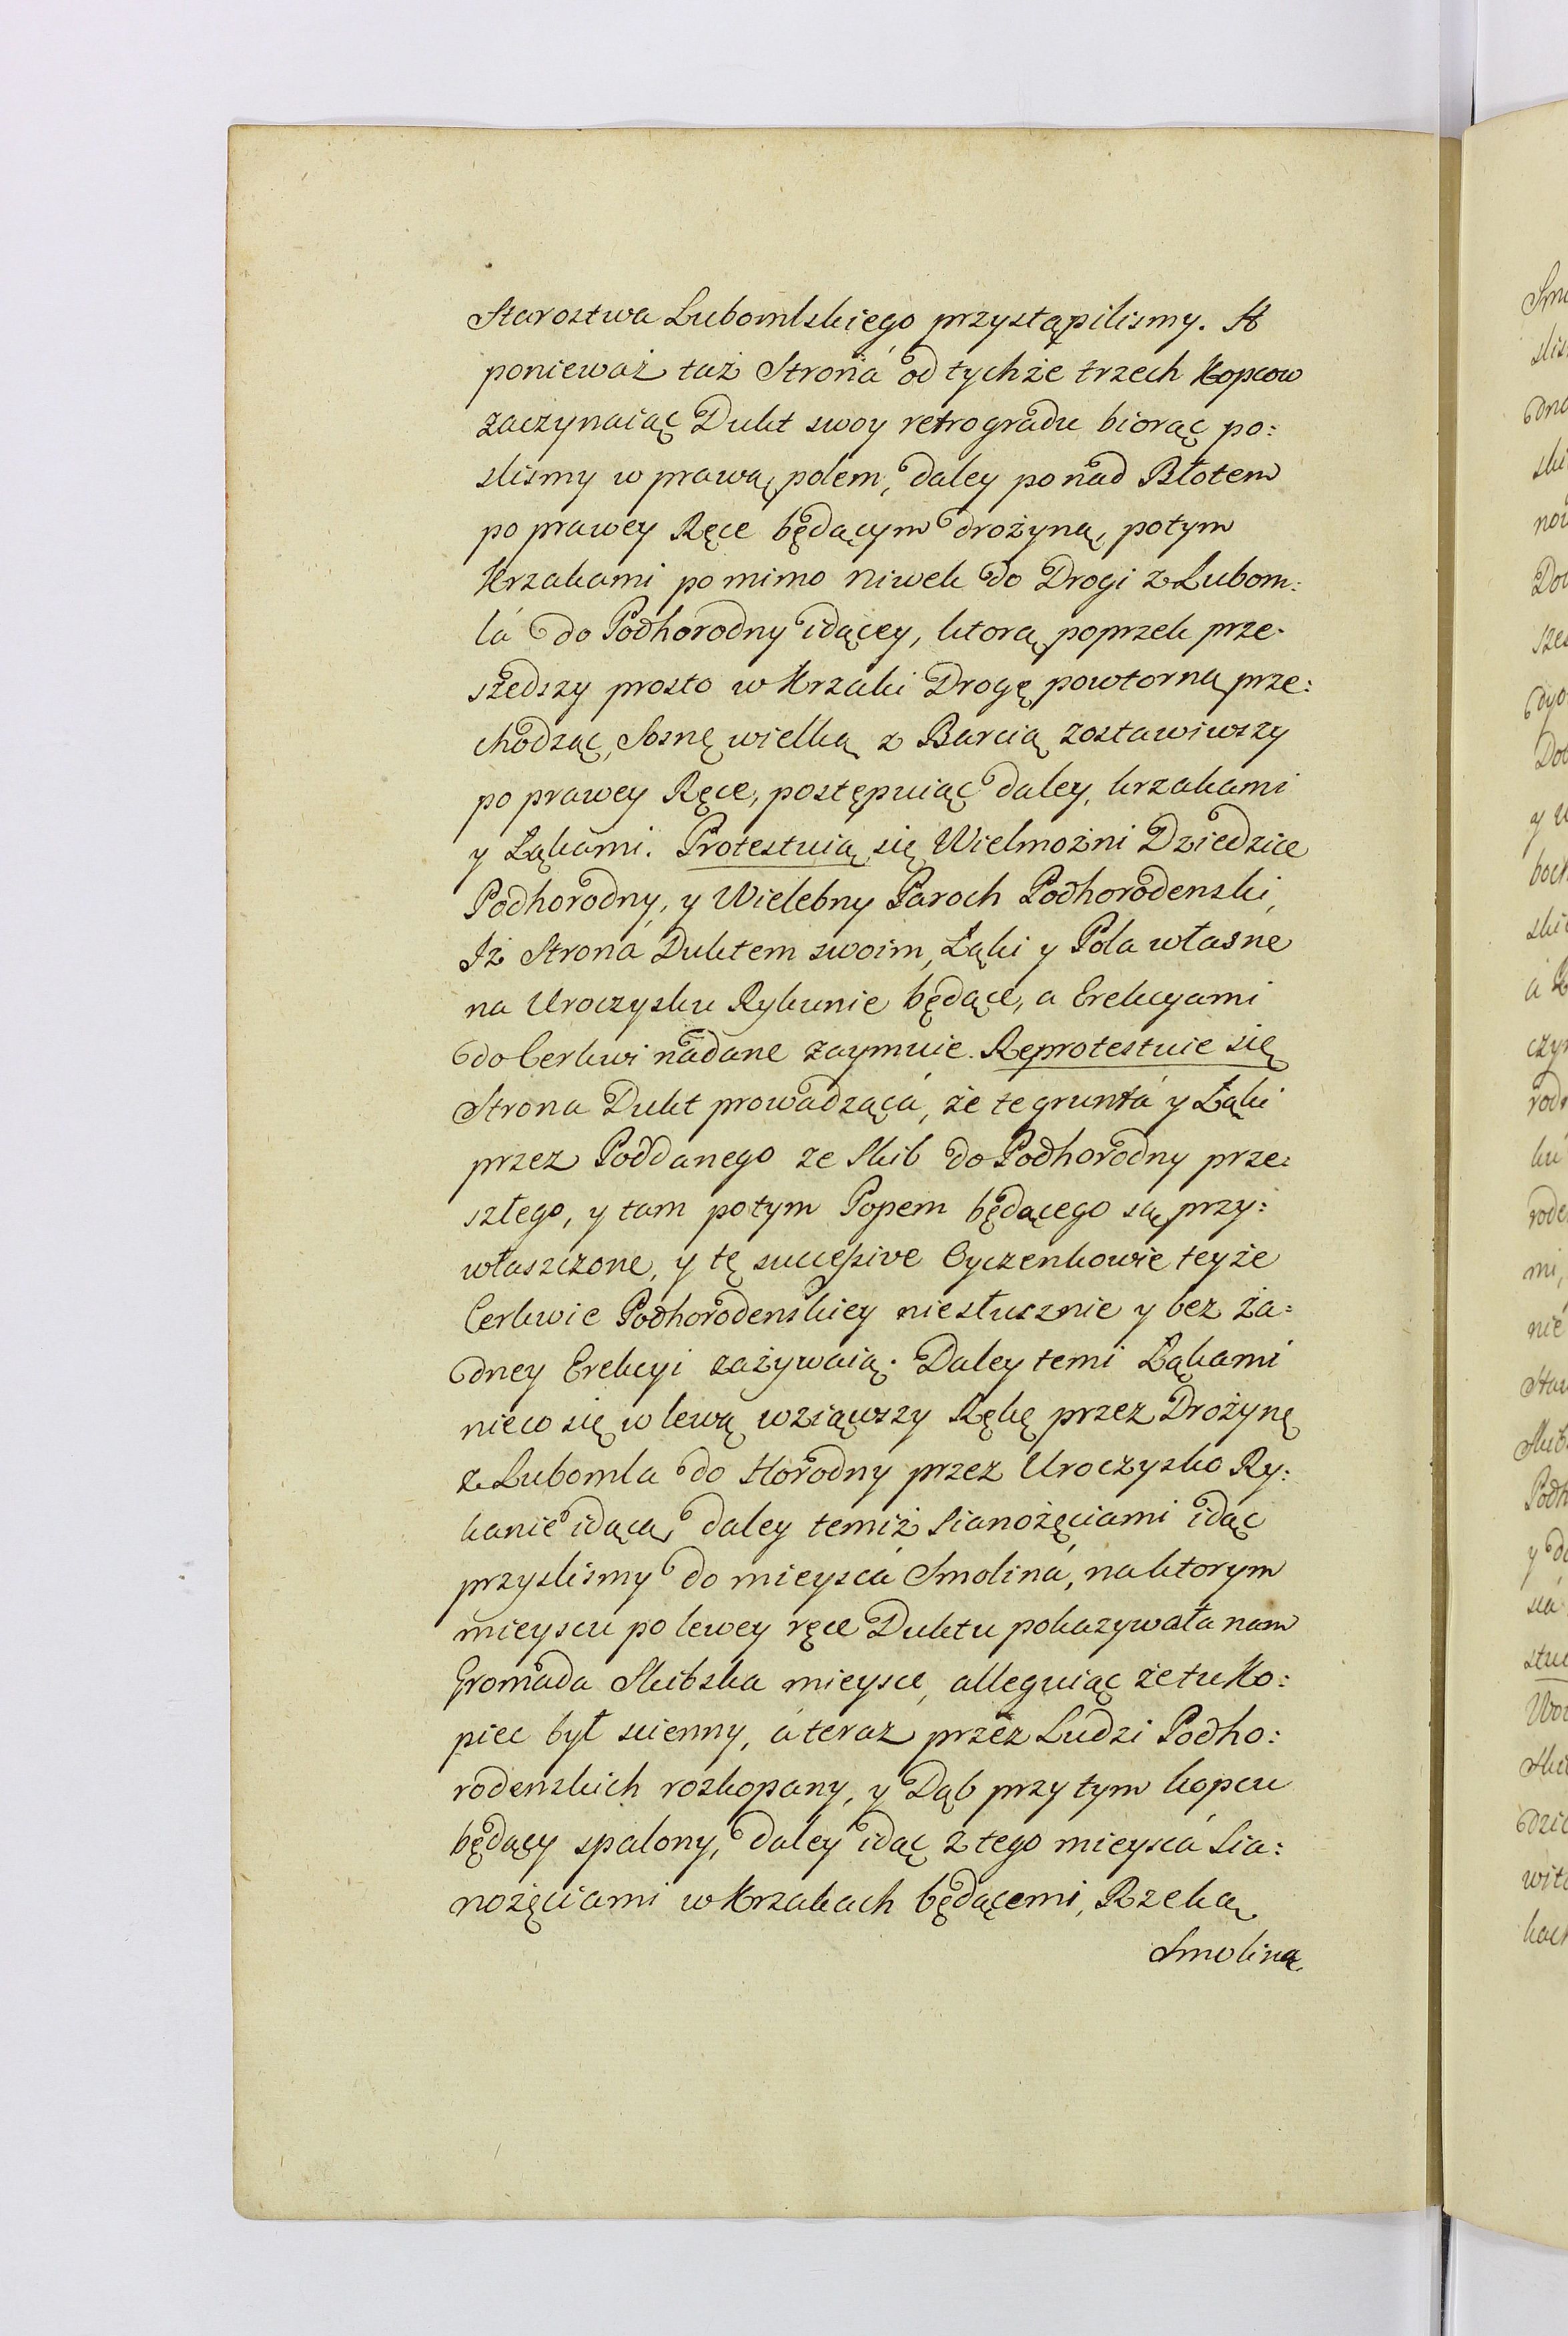 Starostwa Lubomlskiego przystąpilismy. A
ponieważ taż Strona od tychże trzech Kopcow
zaczynaiąc Dukt swoy retrogradu biorąc po:
slismy w prawą polem, daley ponad Błotem
po prawey Ręce będącym drożyną, potym
Krzakami pomimo niwek do Drogi z Lubom:
lá do Podhorodny idącey, ktorą poprzek prze-
szedszy prosto w Krzaki Drogę powtorną prze:
chodząc, Sosnę wielką z Barcią zostawiwszy
po prawey Ręce, postępuiąc daley, krzakami
y Łąkami. Protestuią się Wielmożni Dziedzice
Podhorodny, y Wielebny Paroch Podhorodenski,
Iż Stroná Duktem swoim, Łąki y Pola własne
na Uroczysku Rykunie będące, a Erekcyami
do Cerkwi nadane zaymuie. Reprotestuie się
Strona Dukt prowadzącá, że te gruntá y Łąki
przez Poddanego ze Skib do Podhorodny prze:
szłego, y tam potym Popem będącego są przy:
właszczone, y tę successive Cyczenkowie teyże
Cerkwie Podhorodenskiey niesłusznie y bez ża:
dney Erekcyi zażywaią. Daley temi Łąkami
nieco się w lewą wziąwszy Rękę przez Drożynę
z Lubomla do Horodny przez Uroczysko Ry:
kanie idącą, daley temiż Sianożęciami idąc
przyslismy do mieyscá Smoliná, na ktorym
mieyscu po lewey ręce Duktu pokazywała nam
Gromada Skibska mieysce, alleguiąc że tu Ko:
piec był scienny, á teraz przez Ludzi Podho:
rodenskich rozkopany, y Dąb przy tym kopcu
będący spalony, daley idąc z tego mieyscá Sia:
nożęciami w Krzakach będącemi, Rzeką
Smoliną